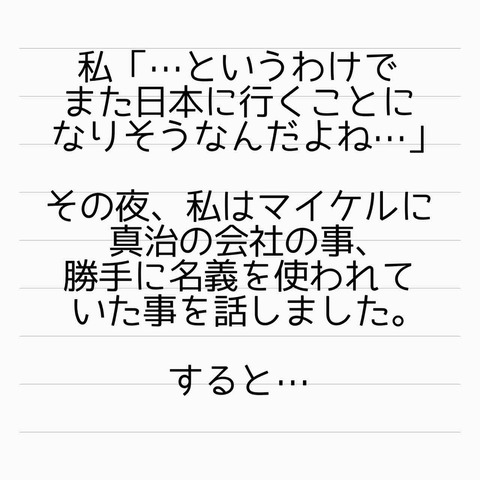 私「…というわけで
また日本に行くことに
なりそうなんだよね…」
その夜、私はマイケルに
真治の会社の事、
勝手に名義を使われて
いた事を話しました。
すると…